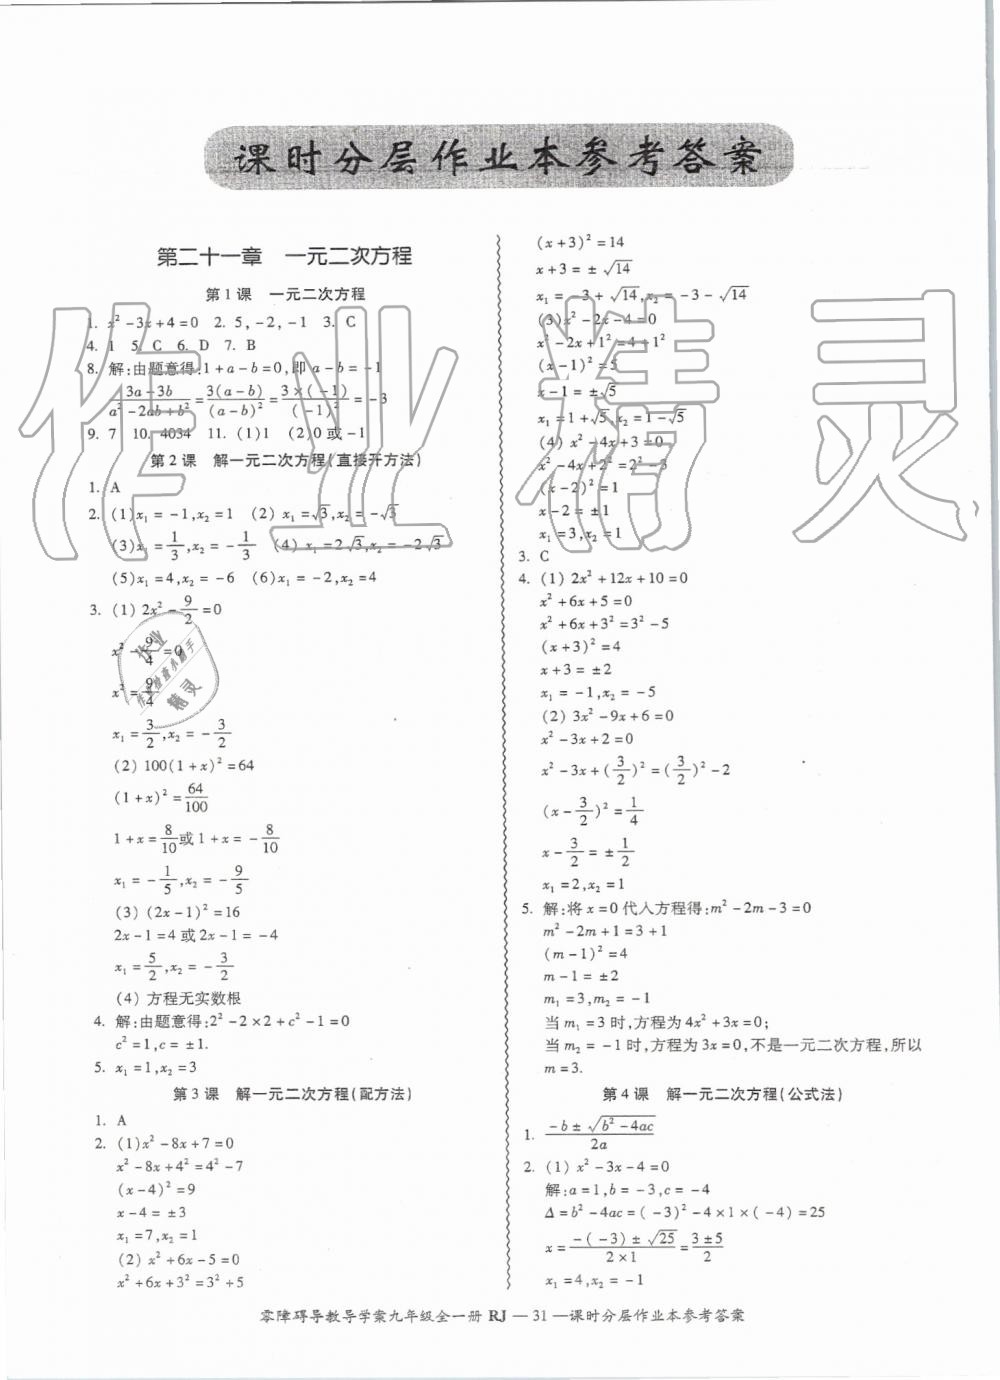 课时分层作业本参考答案
第二十一章 一元二次方程
第1课 一元二次方程
1. x²-3x+4=0 2. 5,-2,-1 3. C
4. 1 5. C 6. D 7. B
8. 解:由题意得:1+a-b=0,即a-b=-1
(3a-3b)/(a²-2ab+b²)=3(a-b)/(a-b)²=3×(-1)/(-1)²=-3
9. 7 10. 4034 11. (1)1 (2)0或-1
第2课 解一元二次方程(直接开方法)
1. A
2. (1)x₁=-1,x₂=1 (2) x₁=√3,x₂=-√3
(3)x₁=1/3,x₂=-1/3 (4) x₁=2√3,x₂=-2√3
(5)x₁=4,x₂=-6 (6)x₁=-2,x₂=4
3. (1) 2x²-9/2=0
x²-9/4=0
x²=9/4
x₁=3/2,x₂=-3/2
(2) 100(1+x)²=64
(1+x)²=64/100
1+x=8/10或1+x=-8/10
x₁=-1/5,x₂=-9/5
(3) (2x-1)²=16
2x-1=4或2x-1=-4
x₁=5/2,x₂=-3/2
(4) 方程无实数根
4. 解:由题意得:2²-2×2+c²-1=0
c²=1,c=±1.
5. x₁=1,x₂=3
第3课 解一元二次方程(配方法)
1. A
2. (1)x²-8x+7=0
x²-8x+4²=4²-7
(x-4)²=9
x-4=±3
x₁=7,x₂=1
(2) x²+6x-5=0
x²+6x+3²=3²+5
(x+3)²=14
x+3=±√14
x₁=-3+√14,x₂=-3-√14
(3)x²-2x-4=0
x²-2x+1²=4+1²
(x-1)²=5
x-1=±√5
x₁=1+√5,x₂=1-√5
(4) x²-4x+3=0
x²-4x+2²=2²-3
(x-2)²=1
x-2=±1
x₁=3,x₂=1
3. C
4. (1) 2x²+12x+10=0
x²+6x+5=0
x²+6x+3²=3²-5
(x+3)²=4
x+3=±2
x₁=-1,x₂=-5
(2) 3x²-9x+6=0
x²-3x+2=0
x²-3x+(3/2)²=(3/2)²-2
(x-3/2)²=1/4
x-3/2=±1/2
x₁=2,x₂=1
5. 解:将x=0代入方程得:m²-2m-3=0
m²-2m+1=3+1
(m-1)²=4
m-1=±2
m₁=3,m₂=-1
当m₁=3时,方程为4x²+3x=0;
当m₂=-1时,方程为3x=0,不是一元二次方程,所以
m=3.
第4课 解一元二次方程(公式法)
1. (-b±√(b²-4ac))/2a
2. (1) x²-3x-4=0
解:a=1,b=-3,c=-4
Δ=b²-4ac=(-3)²-4×1×(-4)=25
x=(-(-3)±√25)/(2×1)=(3±5)/2
x₁=4,x₂=-1
零障碍导教导学案九年级全一册 RJ — 31 —课时分层作业本参考答案
作业精灵
作业
作业检查小助手
精灵